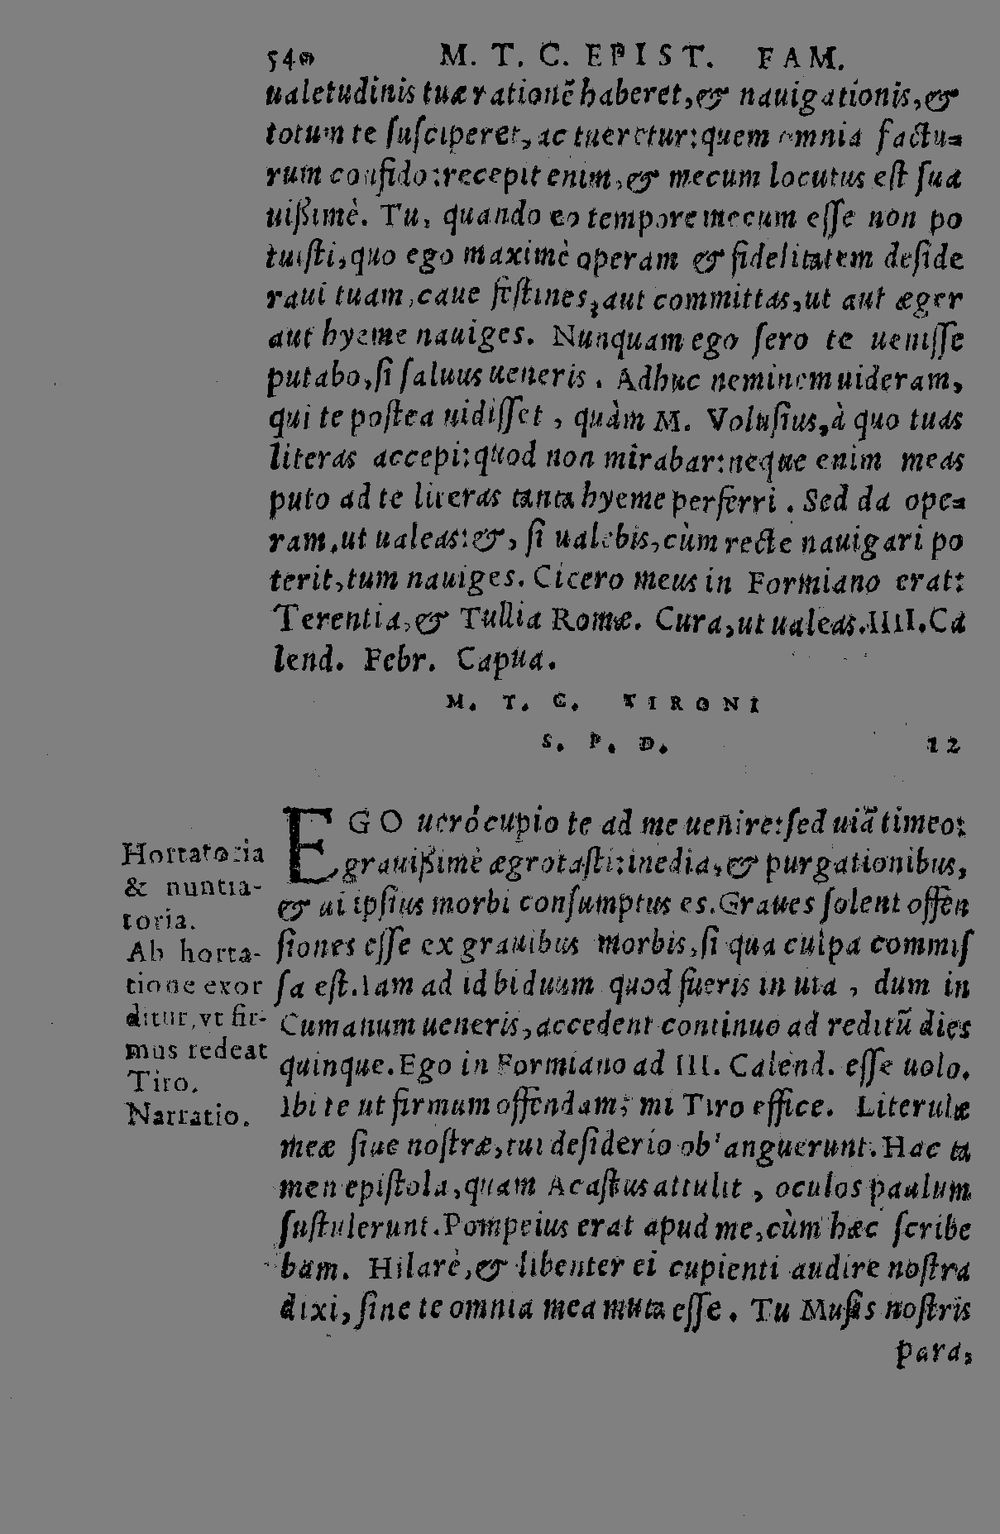 540 M. T. C. EPIST. FAM.
ualetudinis tuæ rationẽ haberet, & nauigationis, &
totum te ſuſciperet, ac tueretur: quem omnia factu-
rum confido: recepit enim, & mecum locutus eſt ſua
uißimè. Tu, quando eo tempore mecum eſſe non po
tuiſti, quo ego maximè operam & fidelitatem deſide
raui tuam, caue feſtines, aut committas, ut aut æger
aut hyeme nauiges. Nunquam ego ſero te ueniſſe
putabo, ſi ſaluus ueneris. Adhuc neminem uideram,
qui te poſtea uidiſſet, quàm M. Voluſius, à quo tuas
literas accepi: quod non mirabar: neque enim meas
puto ad te literas tanta hyeme perferri. Sed da ope-
ram, ut ualeas: &, ſi ualebis, cùm recte nauigari po
terit, tum nauiges. Cicero meus in Formiano erat:
Terentia, & Tullia Romæ. Cura, ut ualeas. IIII. Ca
lend. Febr. Capua.
M. T. C. TIRONI
S. P. D. 12
EGO uerò cupio te ad me uenire: ſed uiã timeo:
grauißimè ægrotaſti: inedia, & purgationibus,
& ui ipſius morbi conſumptus es. Graues ſolent offen
ſiones eſſe ex grauibus morbis, ſi qua culpa commiſ
ſa eſt. Iam ad id biduum quod fueris in uia, dum in
Cumanum ueneris, accedent continuo ad reditũ dies
quinque. Ego in Formiano ad III. Calend. eſſe uolo.
Ibi te ut firmum offendam, mi Tiro effice. Literulæ
meæ ſiue noſtræ, tui deſiderio oblanguerunt. Hac ta
men epiſtola, quam Acaſtus attulit, oculos paulum
ſuſtulerunt. Pompeius erat apud me, cùm hæc ſcribe
bam. Hilarè, & libenter ei cupienti audire noſtra
dixi, ſine te omnia mea muta eſſe. Tu Muſis noſtris
para,
Hortatoria
& nuntia-
toria.
Ab horta-
tione exor
ditur, vt fir-
mus redeat
Tiro.
Narratio.